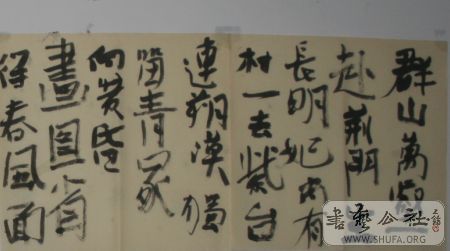 群山萬壑
赴荊門
長明妃尚有
村一去紫台
連朔漠獨
留青冢
向黄昏
畫圖省
得春風面
書藝公社
WWW.SHUFA.ORG